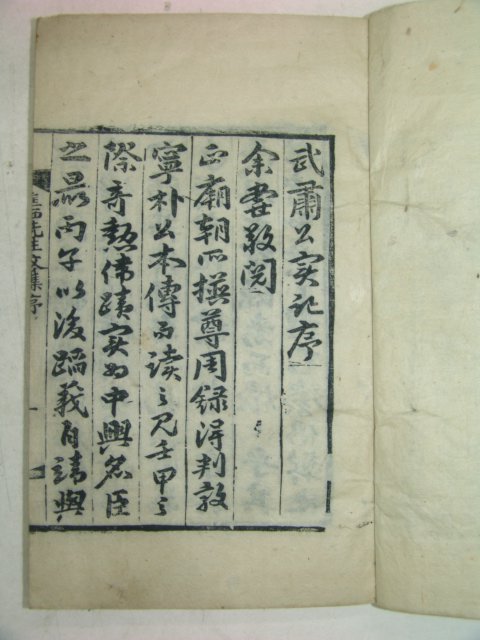 武肅公实记序
余嘗敬閲
正廟朝所撰尊周録得判敦
寧朴公本傳而读之见壬甲之
際奇勲偉蹟实为中興名臣
之最丙子以後蹈義自靖與
先生文集序